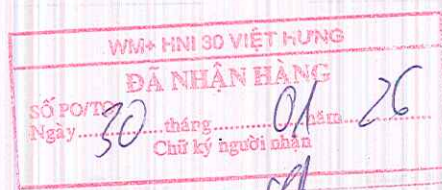 WM+ HNI 30 VIỆT HƯNG
ĐÃ NHẬN HÀNG
SỐ PO/TO
Ngày.....30.....tháng.....01.....năm.....26
Chữ ký người nhận